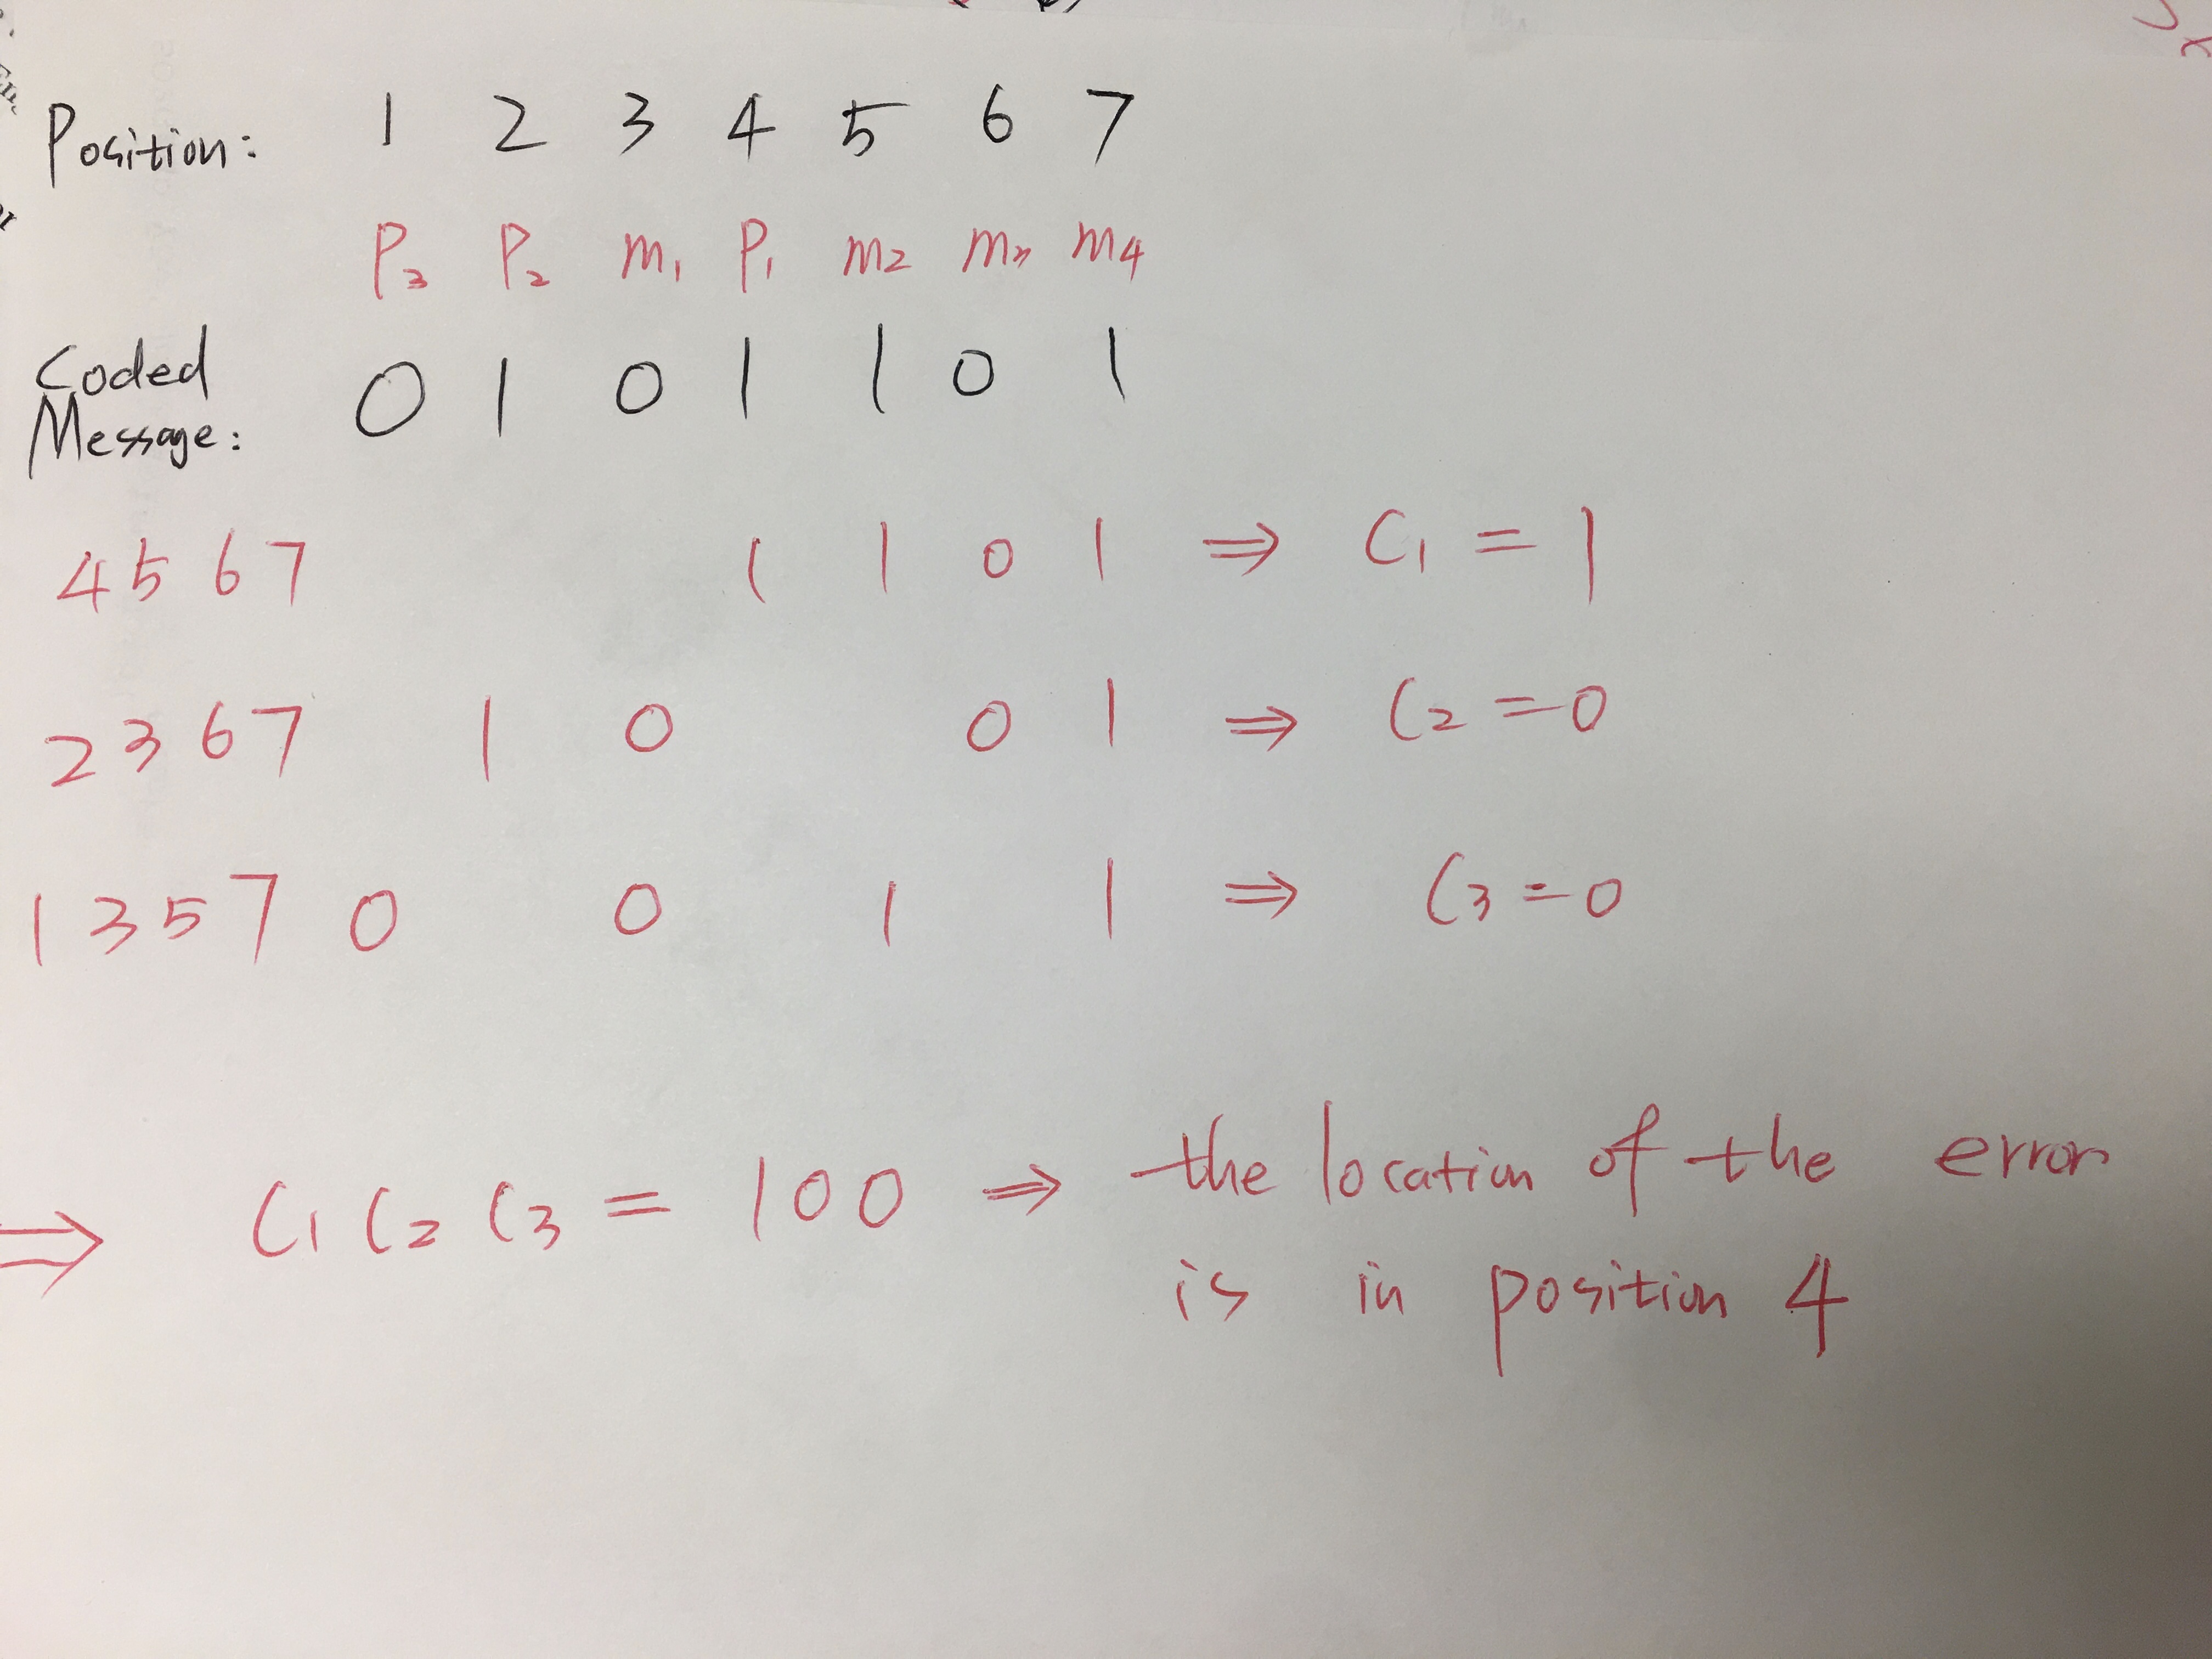 Position: 1 2 3 4 5 6 7
P3 P2 m1 P1 m2 m3 m4
Coded
Message: 0 1 0 1 1 0 1
4 5 6 7 1 1 0 1 ⇒ C1 = 1
2 3 6 7 1 0 0 1 ⇒ C2 = 0
1 3 5 7 0 0 1 1 ⇒ C3 = 0
⇒ C1 C2 C3 = 100 ⇒ the location of the error
is in position 4